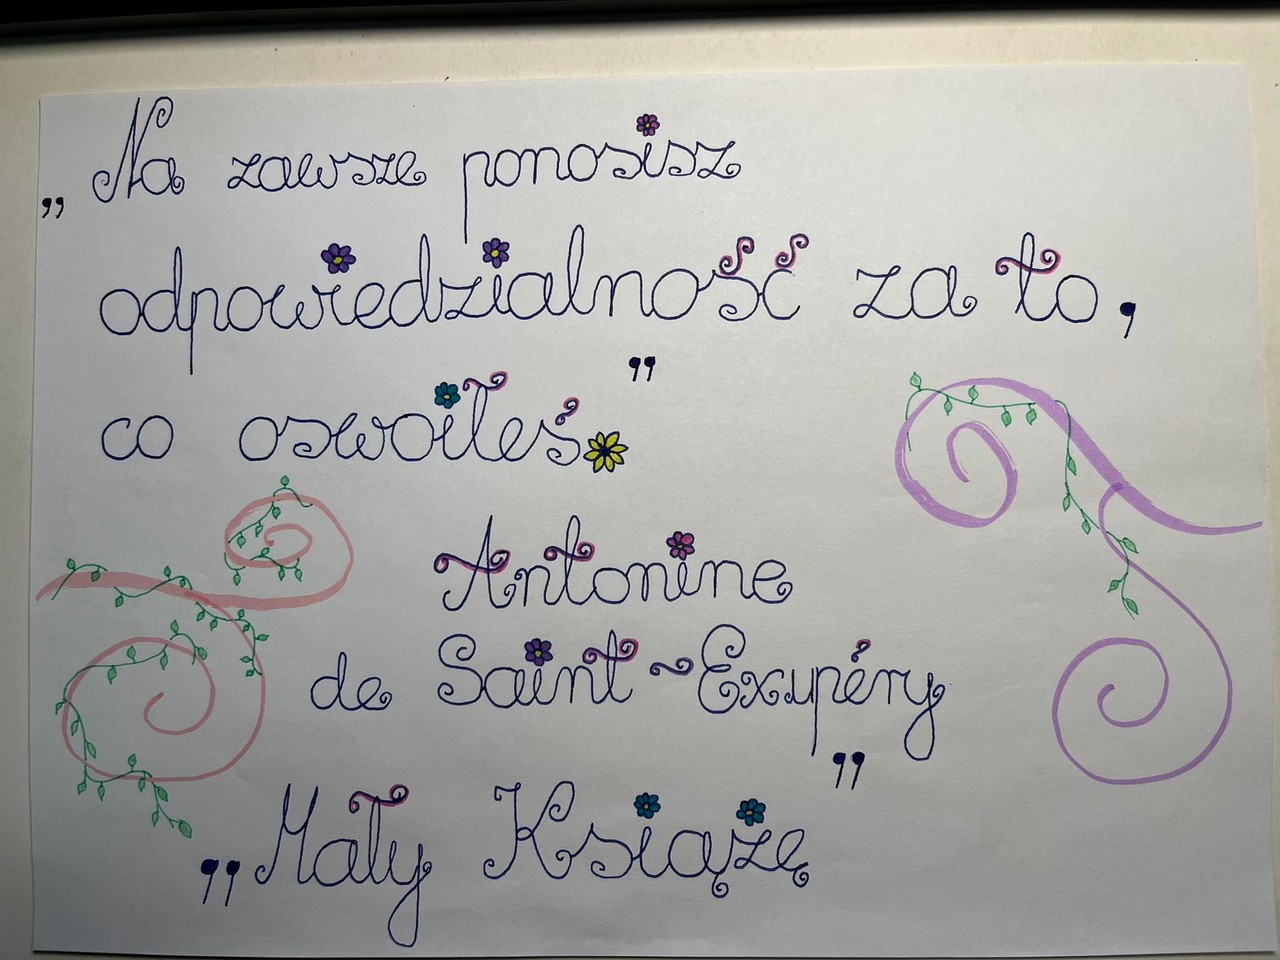 „Na zawsze ponosisz
odpowiedzialność za to,
co oswoiłeś.”
Antonine
de Saint-Exupéry
„Mały Książę”